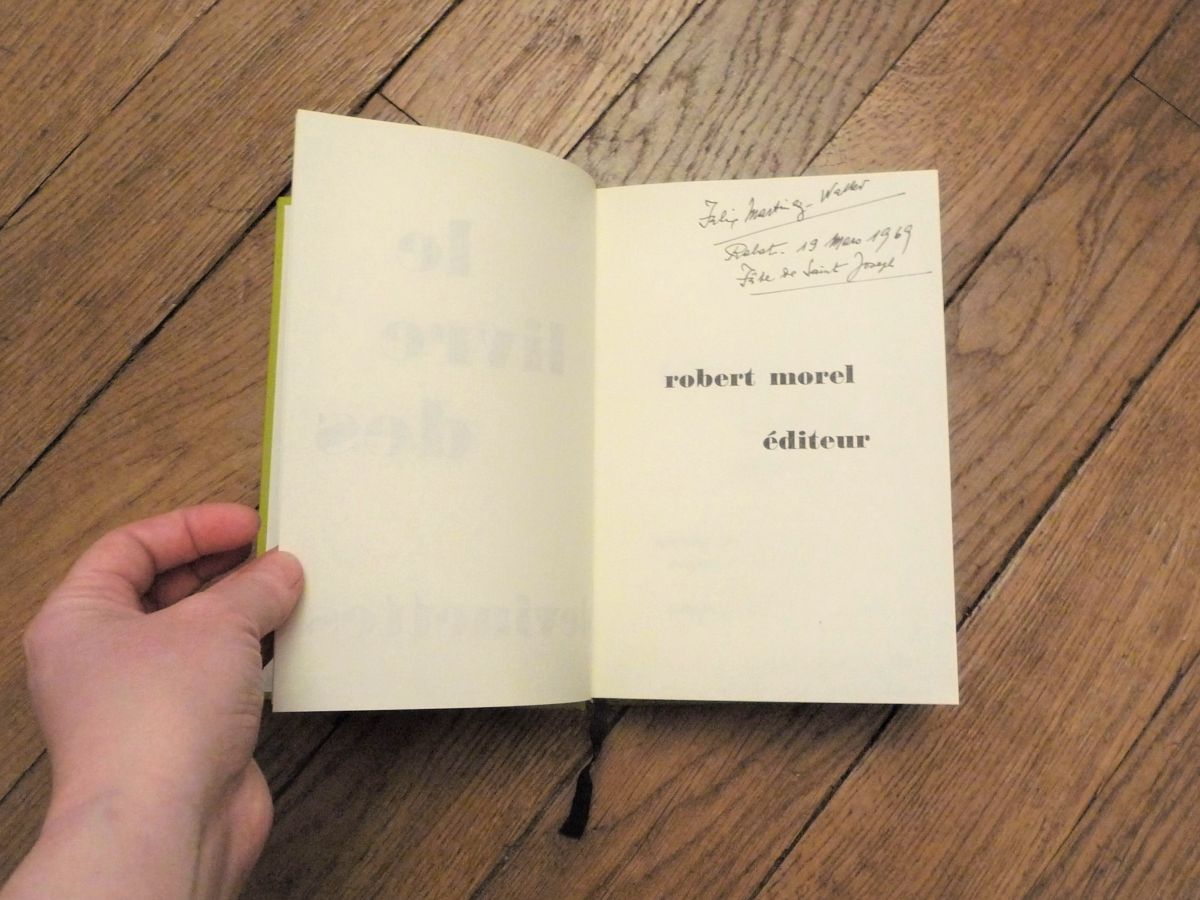 le
livre
des
Felix Martinez-Walter
Rabat. 19 Mars 1969
Fête de Saint Joseph
robert morel
éditeur